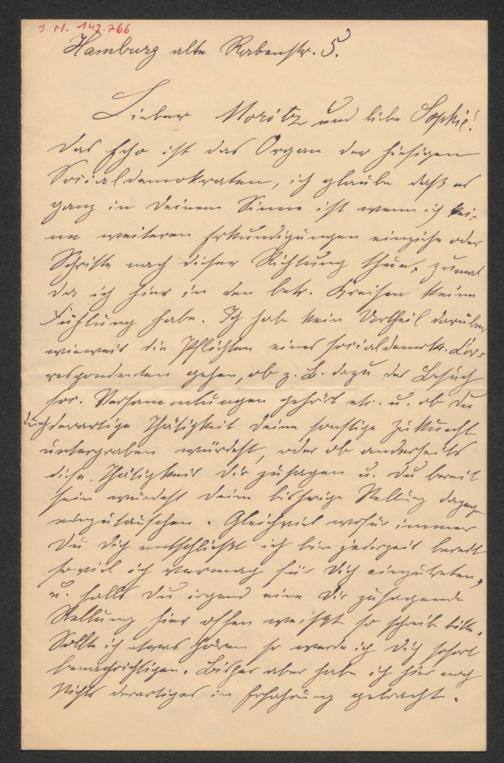 J. N. 143.766
Hamburg alte Rabenstr. 5.
Lieber Moritz und liebe Sophie!
Das Echo ist das Organ der hiesigen
Socialdemokraten, ich glaube daß es
ganz in Deinem Sinne ist wenn ich kei-
ne weiteren Erkundigungen einziehe oder
Schritte nach dieser Richtung thue, zumal
da ich hier in den betr. Kreisen keine
Fühlung habe. Ich hab kein Urtheil darüber,
wieweit die Pflichten eines socialdemokr. Cor-
respondenten gehen, ob z. B. dazu der Besuch
soc. Versammlungen gehört etc. u. ob Du
durch derartige Thätigkeit Deine sonstige Zukunft
untergraben würdest, oder ob anderseits
diese Thätigkeit Dir zusagen u. Du bereit
sein würdest Deine bisherige Stellung dagegen
einzutauschen. Gleichviel wofür immer
Du Dich entschließt ich bin jederzeit bereit
soviel ich vermag für Dich einzutreten,
u. falls Du irgend eine Dir zusagende
Stellung hier offen weißt so schreib bitte.
Sollte ich etwas hören so werde ich Dich sofort
benachrichtigen. Bisher aber habe ich hier noch
Nichts derartiges in Erfahrung gebracht.